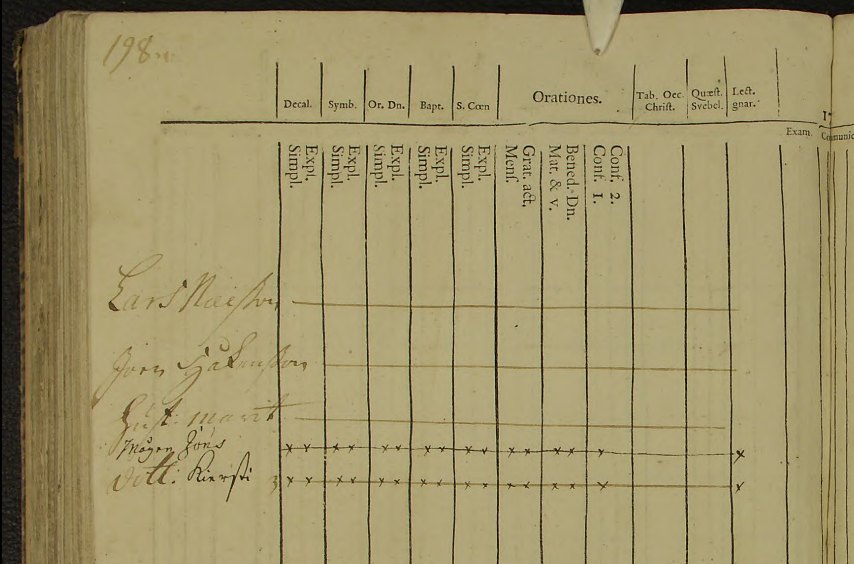 198
Decal. Symb. Or. Dn. Bapt. S. Cœn Orationes. Tab. Oec. Christ. Quæst. Svebel. Lect. gnar.
Exam.
Simpl. Expl. Simpl. Expl. Simpl. Expl. Simpl. Expl. Simpl. Expl. Menſ. Grat. act. Mat. & v. Bened. Dn. Conf. 1. Conf. 2.
Lars
Joen
Hust. marit
Mågen Jöns
dott. Kiersti